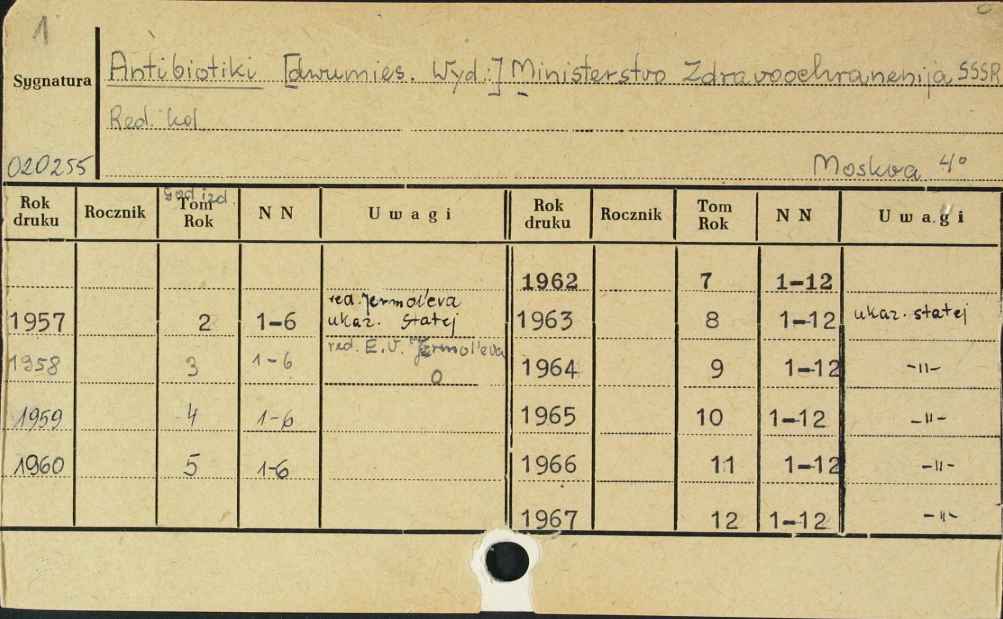 1
Sygnatura
Antibiotiki [dwumies. Wyd.:] Ministerstvo Zdravoochranenija SSSR
Red. kol.
020255
Moskva 4°
Rok druku Rocznik god izd. Tom Rok N N Uwagi Rok druku Rocznik Tom Rok N N Uwagi
1962 7 1-12
1957 2 1-6 red. Jermol'eva ukaz. statej 1963 8 1-12 ukaz. statej
1958 3 1-6 red. E.V. Jermol'eva 0 1964 9 1-12 -"-
1959 4 1-6 1965 10 1-12 -"-
1960 5 1-6 1966 11 1-12 -"-
1967 12 1-12 -"-